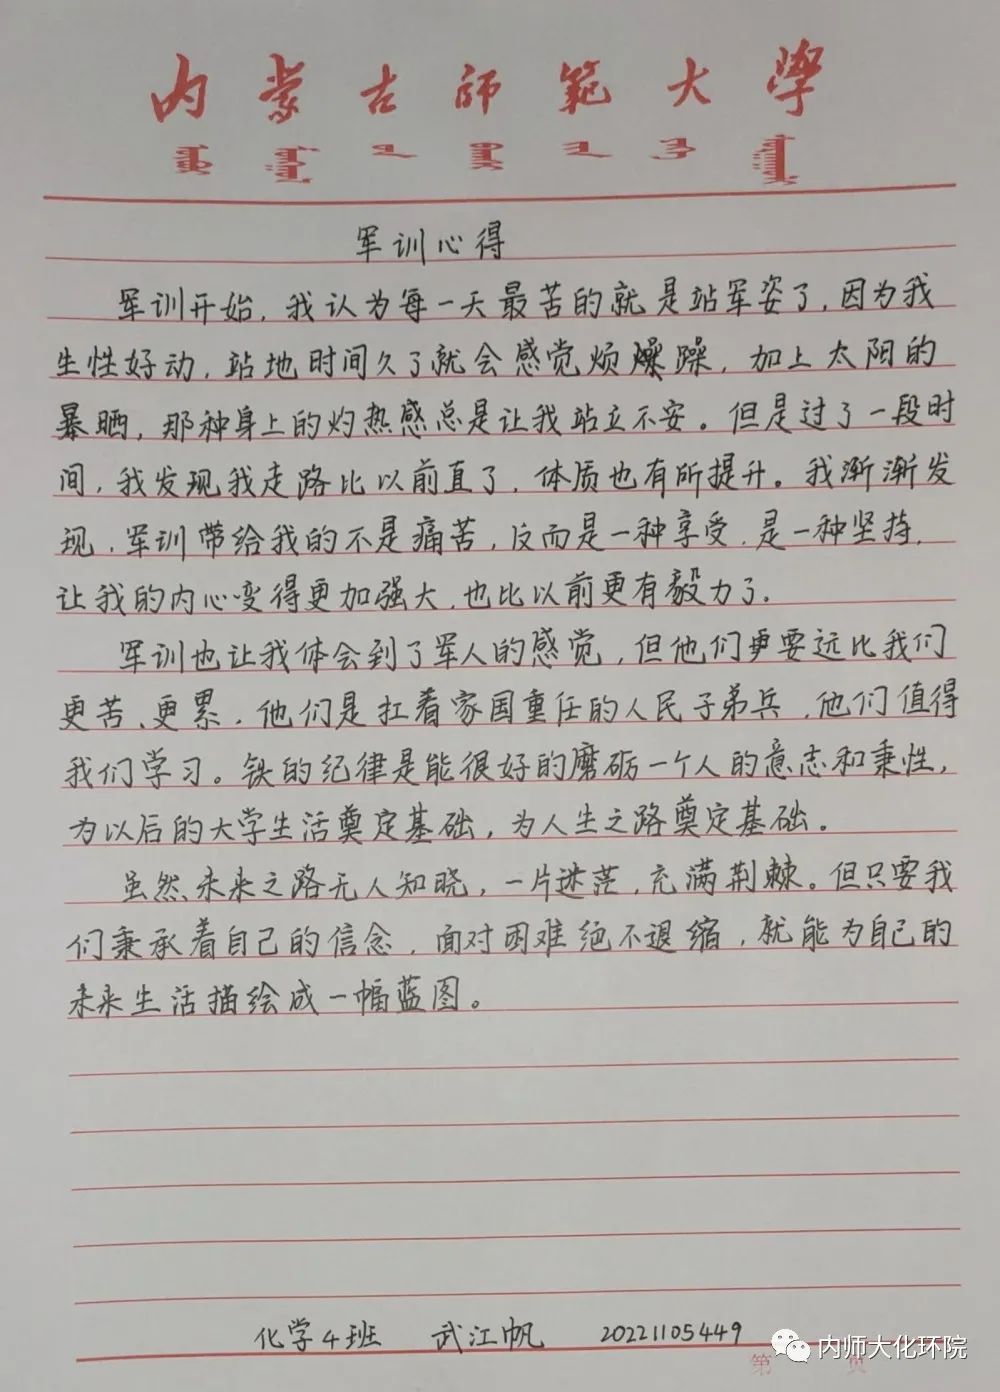 内蒙古师范大学
军训心得
军训开始，我认为每一天最苦的就是站军姿了，因为我
生性好动，站地时间久了就会感觉烦躁，加上太阳的
暴晒，那种身上的灼热感总是让我站立不安。但是过了一段时
间，我发现我走路比以前直了，体质也有所提升。我渐渐发
现，军训带给我的不是痛苦，反而是一种享受，是一种坚持，
让我的内心变得更加强大，也比以前更有毅力了。
军训也让我体会到了军人的感觉，但他们更要远比我们
更苦、更累，他们是扛着家国重任的人民子弟兵，他们值得
我们学习。铁的纪律是能很好的磨砺一个人的意志和秉性，
为以后的大学生活奠定基础，为人生之路奠定基础。
虽然未来之路无人知晓，一片迷茫，充满荆棘。但只要我
们秉承着自己的信念，面对困难绝不退缩，就能为自己的
未来生活描绘成一幅蓝图。
化学4班 武江帆 20221105449
第 页
内师大化环院